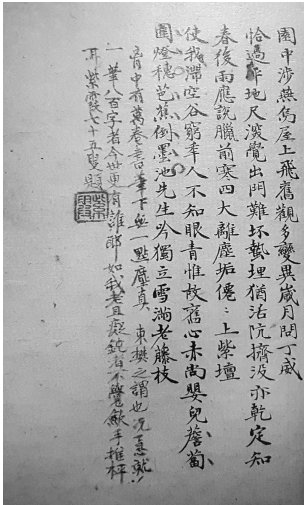 園中涉無馬屋上飛舊觀多變異歲月閱丁威
恰過
地尺深覺出門難坏蟄埋猶活阬擠汲亦乾定知
春後雨應說臘前寒四大離塵垢僊〻上紫壇
使我滯空谷窮年人不知眼青惟故舊心赤尚嬰兒薝蔔
圍燈穗芭蕉倒墨池先生吟獨立雪滿老藤枝
胷中有萬卷書筆下無一點塵真東樊之謂也況
一筆八百字者今世更有誰耶如我老且癡鈍者不覺斂手推枰
耳紫霞七十五叟題